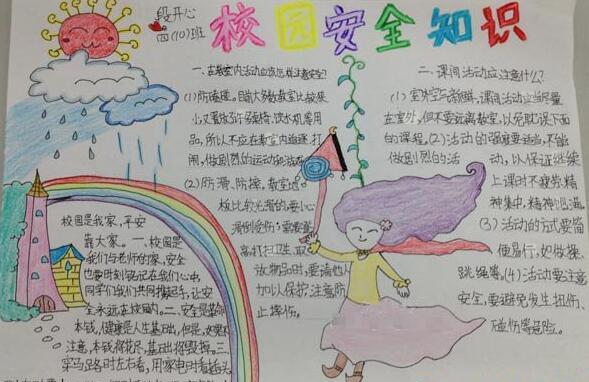 段开心
四(10)班
校园安全知识
一、在教室内活动应该怎样注意安全?
(1)防磕碰。目前大多数教室比较狭
小又置放了许多桌椅、饮水机等用
品,所以不应在教室内追逐、打
闹,做剧烈的运动和游戏
(2)防滑、防摔。教室地
板比较光滑的要小心
滑倒受伤;需要登
高打扫卫生、取
放物品时,要请他人
加以保护,注意防
止摔伤。
二、课间活动应注意什么?
(1)室外空气新鲜,课间活动应当尽量
在室外,但不要远离教室,以免耽误下面
的课程。(2)活动的强度要适当,不能
做剧烈的活动,以保证继续
上课时不疲劳、精
神集中、精神饱满
(3)活动的方式要简
便易行,如做操、
跳绳等。(4)活动要注意
安全,要避免发生扭伤、
碰伤等危险。
校园是我家,平安
靠大家。一、校园是
我们与老师的家,安全
也要时刻铭记在我们心中,
同学们我们共同携起手,让安
全永远在校园内。二、安全是革命
本钱,健康是人生基础,你是,如果不
注意,本钱将花尽,基础将毁掉。三、
穿马路时左右看,用家电时看插头